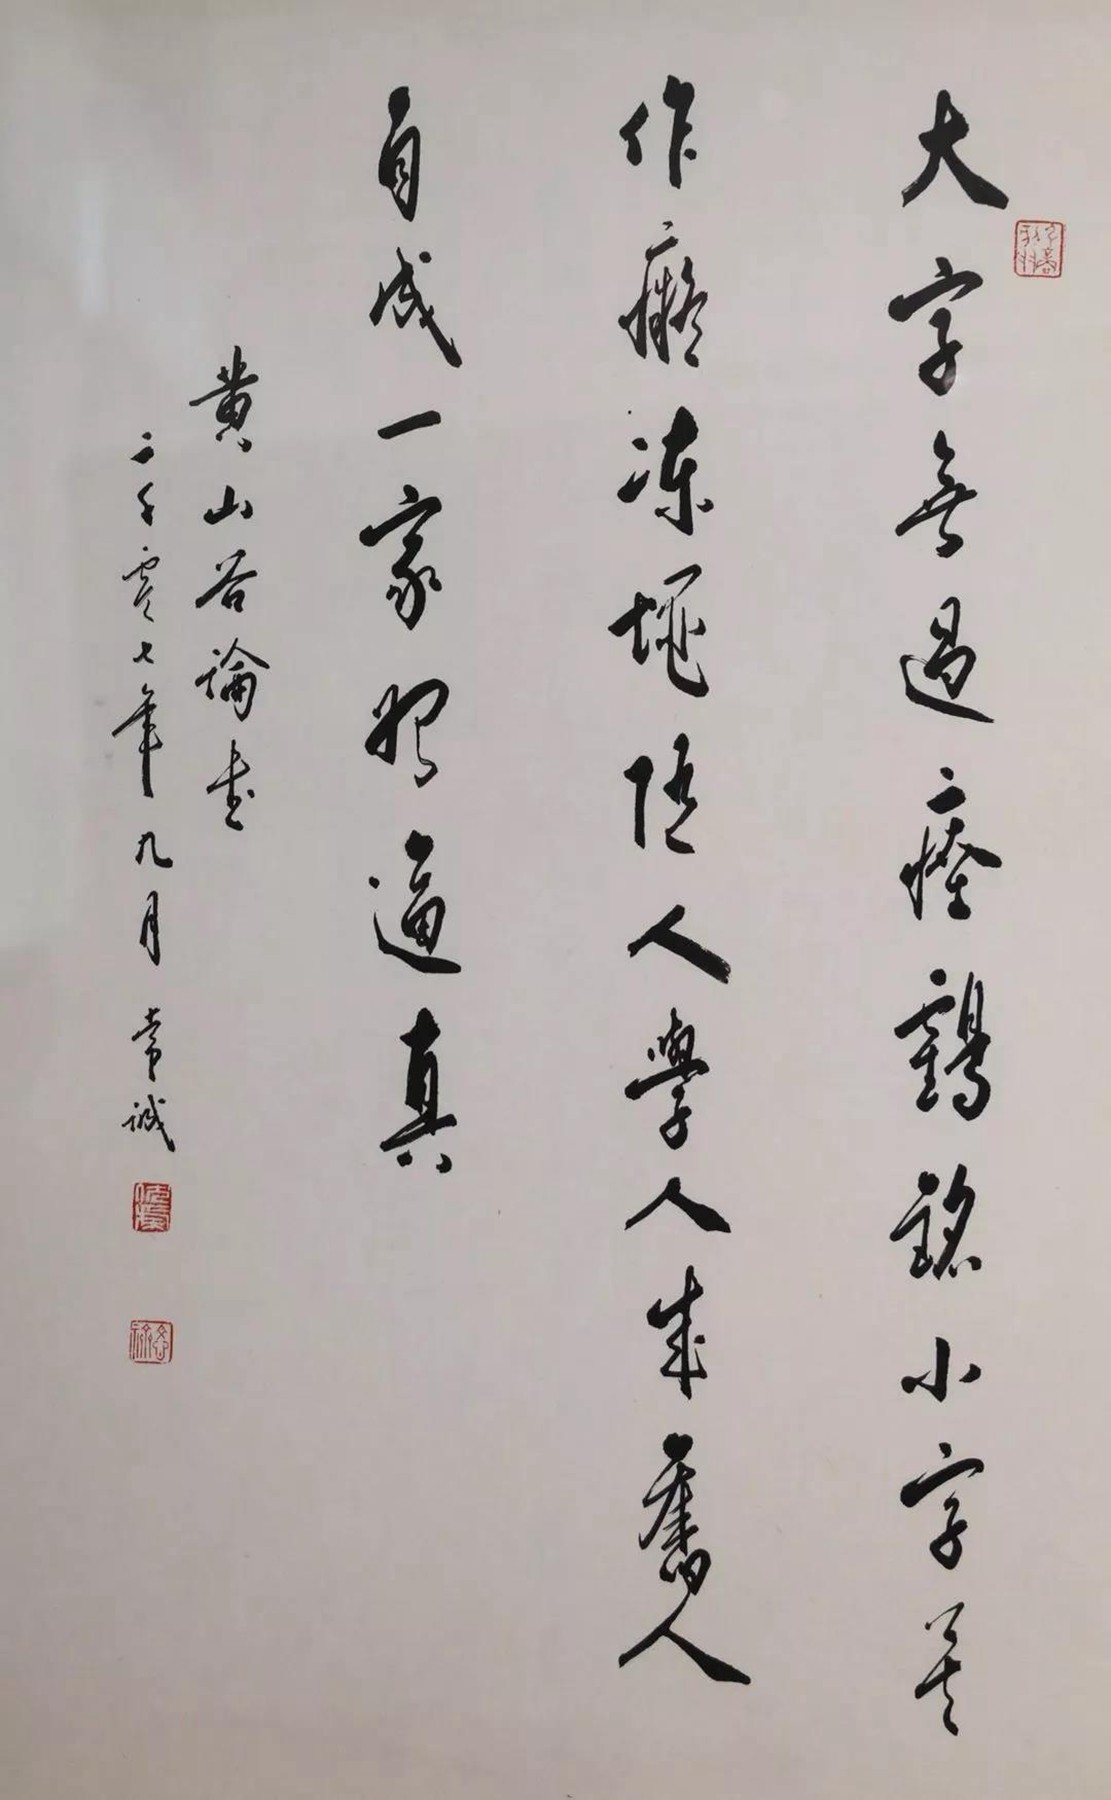 大字無過瘞鶴銘小字莫
作癡凍蠅隨人學人成舊人
自成一家始逼真
黄山谷論書
二千零七年九月 常誠